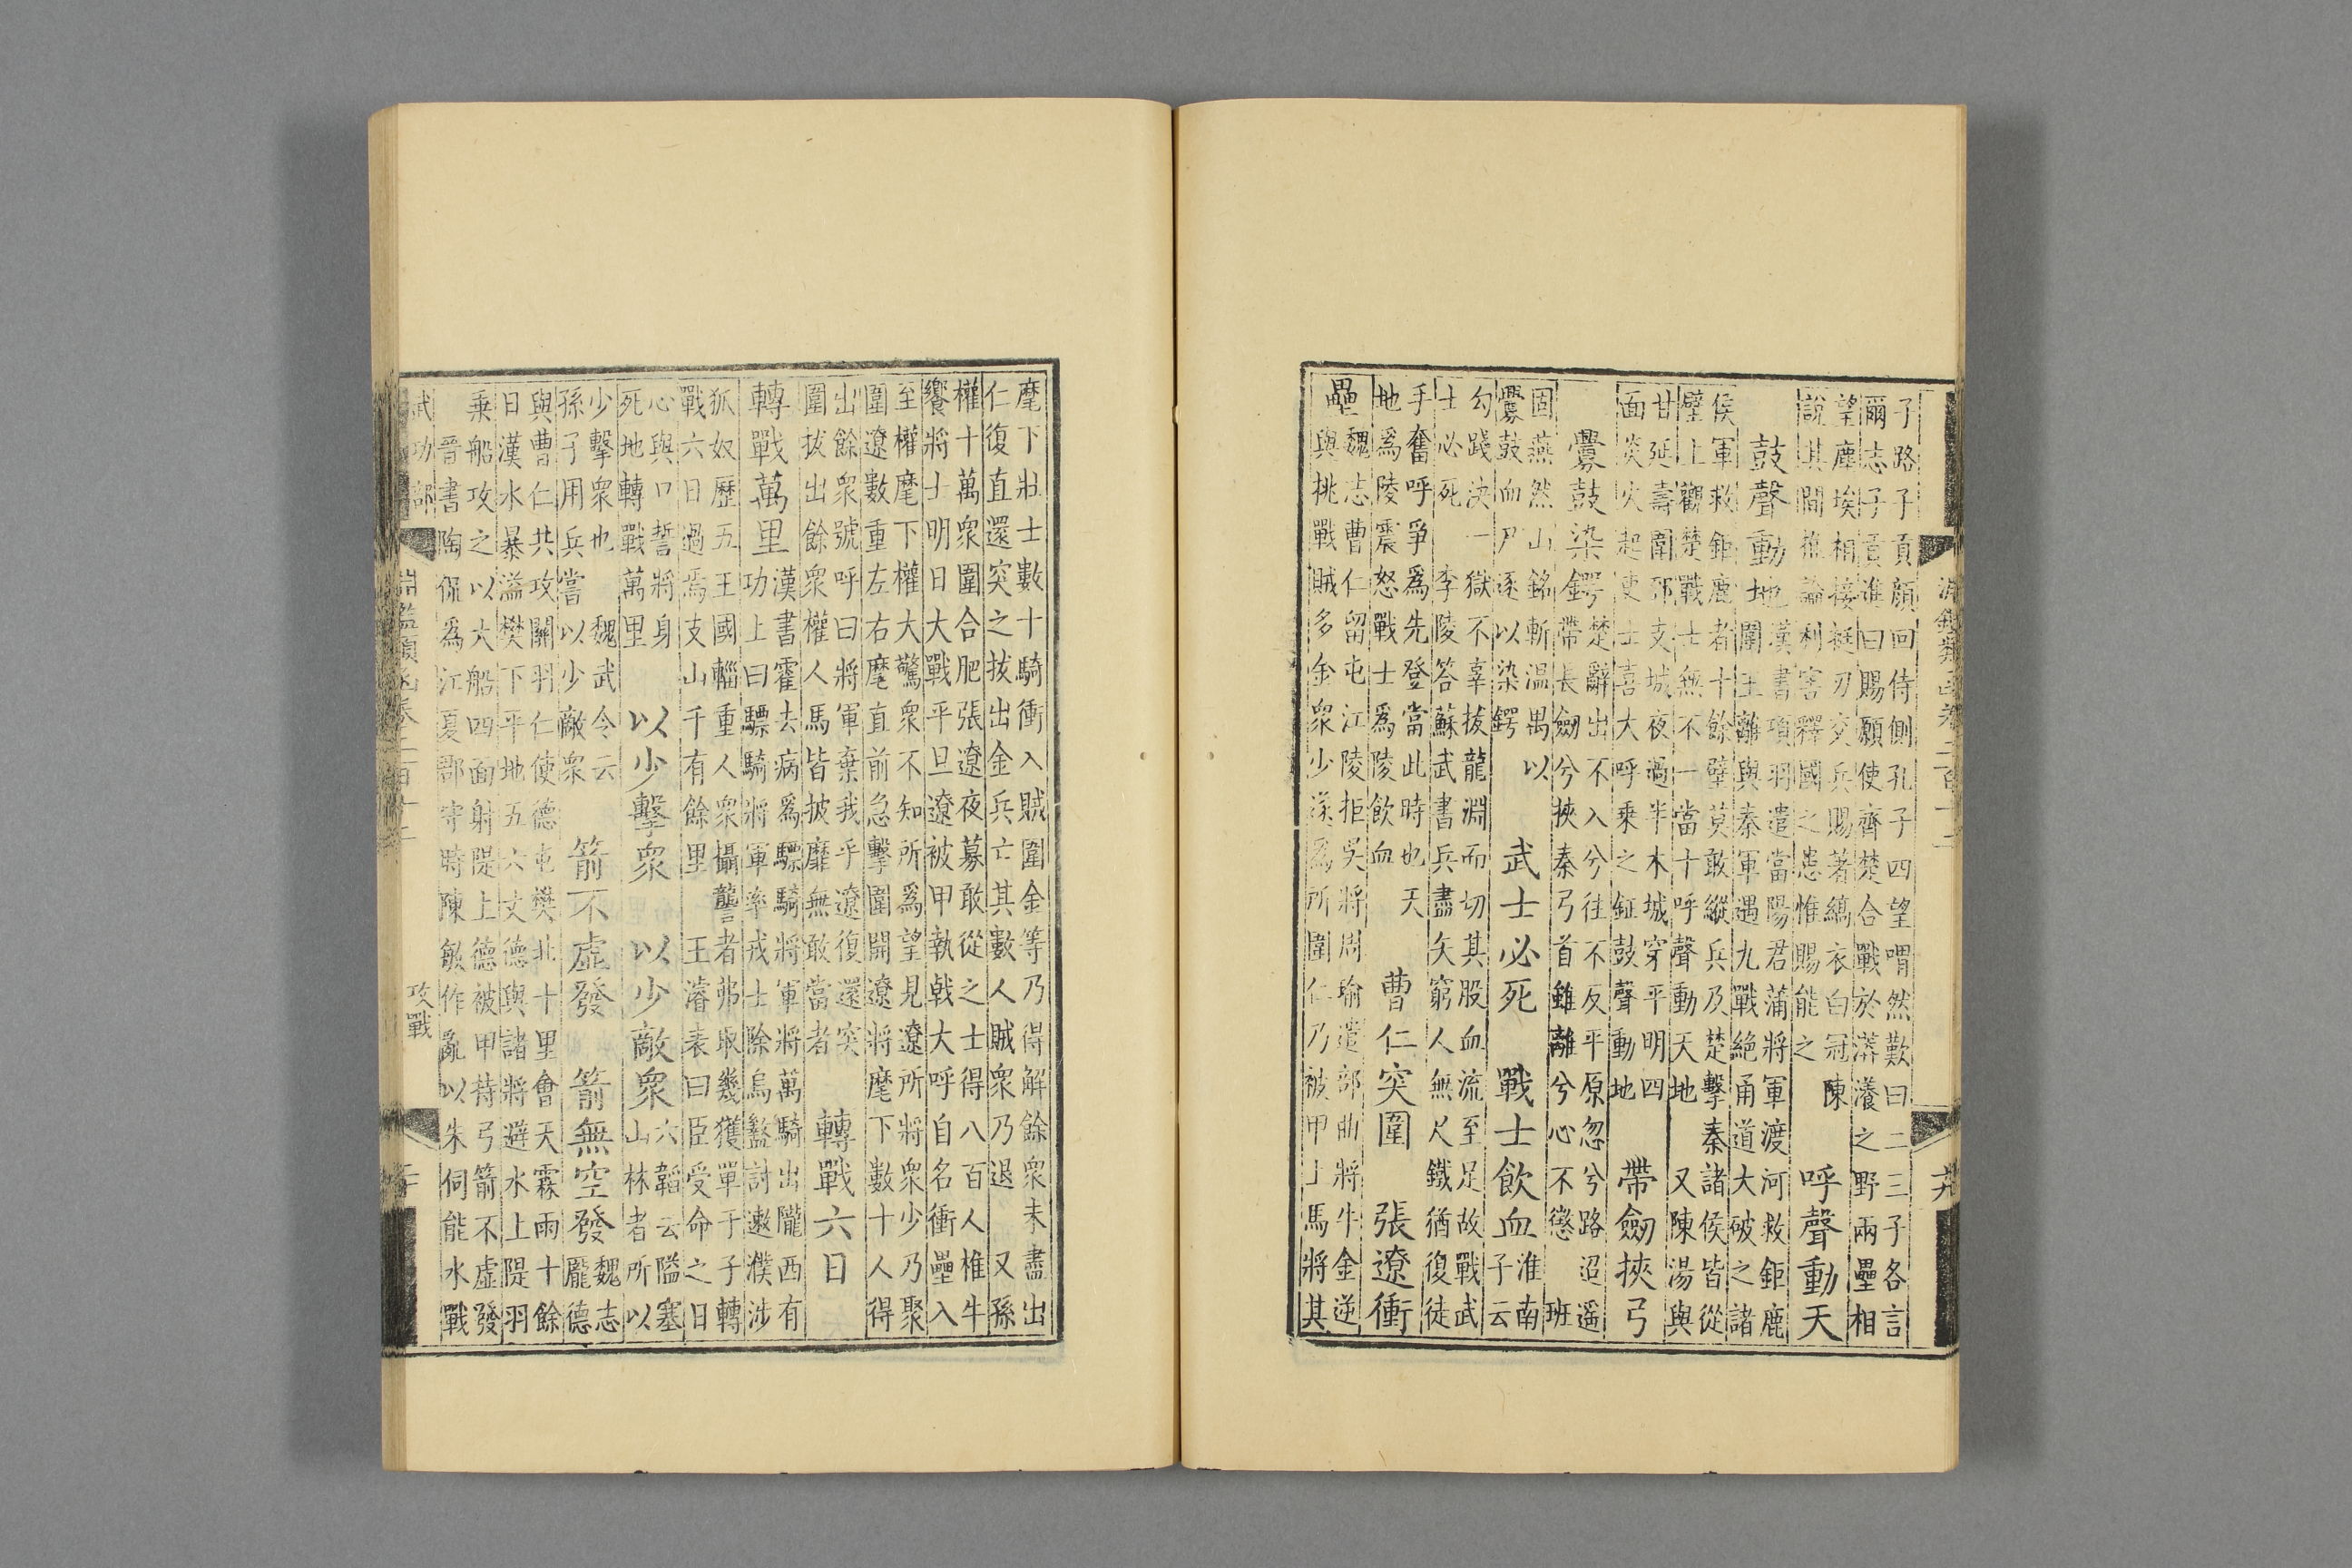 子路子貢顔回侍側孔子四望喟然歎曰二三子各言
爾志子貢進曰賜願使齊楚合戰於漭瀁之野兩壘相
望塵埃相接挺刃交兵賜著縞衣白冠陳
說其間推論利害釋國之患惟賜能之
呼聲動天
鼓聲動地
漢書項羽遣當陽君蒲將軍渡河救鉅鹿
圍王離與秦軍遇九戰絶甬道大破之諸
侯軍救鉅鹿者十餘壁莫敢縱兵乃楚擊秦諸侯皆從
壁上觀楚戰士無不一當十呼聲動天地 又陳湯與
甘延壽圍郅支城夜過半木城穿平明四
面火起吏士喜大呼乘之鉦鼓聲動地
帶劒挾弓
釁鼓染鍔
楚辭出不入兮往不反平原忽兮路迢遥
帶長劒兮挾秦弓首雖離兮心不懲 班
固燕然山銘斬温禺以
釁鼓血尸逐以染鍔
武士必死 戰士飲血
淮南
子云
勾踐决一獄不辜拔龍淵而切其股血流至足故戰武
士必死 李陵答蘇武書兵盡矢窮人無尺鐵猶復徒
手奮呼爭爲先登當此時也天
地爲陵震怒戰士爲陵飲血
曹仁突圍 張遼衝
壘
魏志曹仁留屯江陵拒吳將周瑜遣部曲將牛金逆
與挑戰賊多金衆少遂爲所圍仁乃被甲上馬將其
麾下壯士數十騎衝入賊圍金等乃得解餘衆未盡出
仁復直還突之拔出金兵亡其數人賊衆乃退 又孫
權十萬衆圍合肥張遼夜募敢從之士得八百人椎牛
饗將士明日大戰平旦遼被甲執戟大呼自名衝壘入
至權麾下權大驚衆不知所爲望見遼所將衆少乃聚
圍遼數重左右麾直前急擊圍開遼將麾下數十人得
出餘衆號呼曰將軍棄我乎遼復還突
圍拔出餘衆權人馬皆披靡無敢當者
轉戰六日
轉戰萬里
漢書霍去病爲驃騎將軍將萬騎出隴西有
功上曰驃騎將軍率戎士隃烏盭討遬濮涉
狐奴歷五王國輜重人衆攝讋者弗取幾獲單于子轉
戰六日過焉支山千有餘里 王濬表曰臣受命之日
心與口誓將身
死地轉戰萬里
以少擊衆 以少敵衆
六韜云隘塞
山林者所以
少擊衆也 魏武令云
孫子用兵嘗以少敵衆
箭不虛發 箭無空發
魏志
龐德
與曹仁共攻關羽仁使德屯樊北十里會天霖雨十餘
日漢水暴溢樊下平地五六丈德與諸將避水上隄羽
乘船攻之以大船四面射隄上德被甲持弓箭不虛發
晉書陶侃爲江夏郡守時陳敏作亂以朱伺能水戰
武功部
淵鑑類函卷二百十二
攻戰